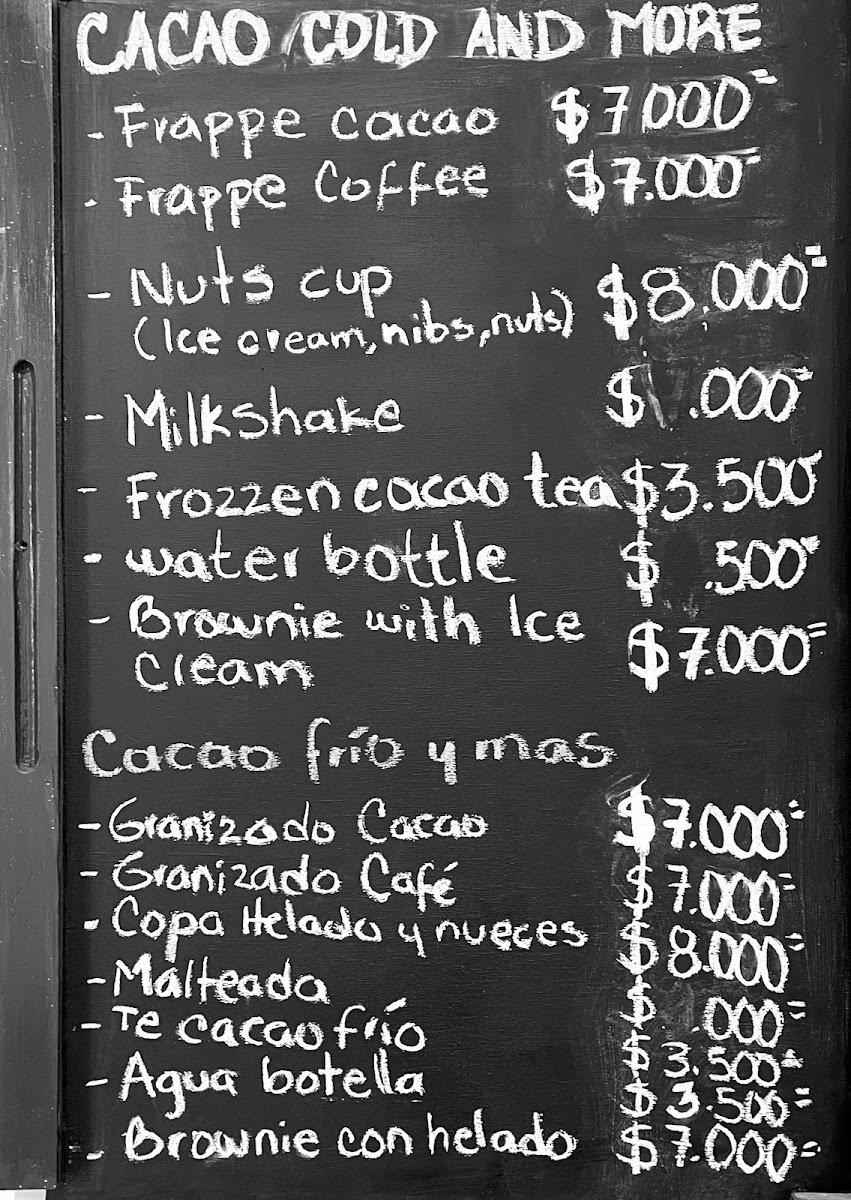 CACAO COLD AND MORE
- Frappe cacao $7.000=
- Frappe Coffee $7.000=
- Nuts cup $8.000=
(Ice cream, nibs, nuts)
- Milkshake $ .000=
- Frozzen cacao tea $3.500
- water bottle $ .500=
- Brownie with Ice $7.000=
cream
Cacao frío y mas
- Granizado Cacao $7.000=
- Granizado Café $7.000=
- Copa Helado y nueces $8.000=
- Malteada $ .000=
- Te cacao frío $3.500=
- Agua botella $3.500=
- Brownie con helado $7.000=